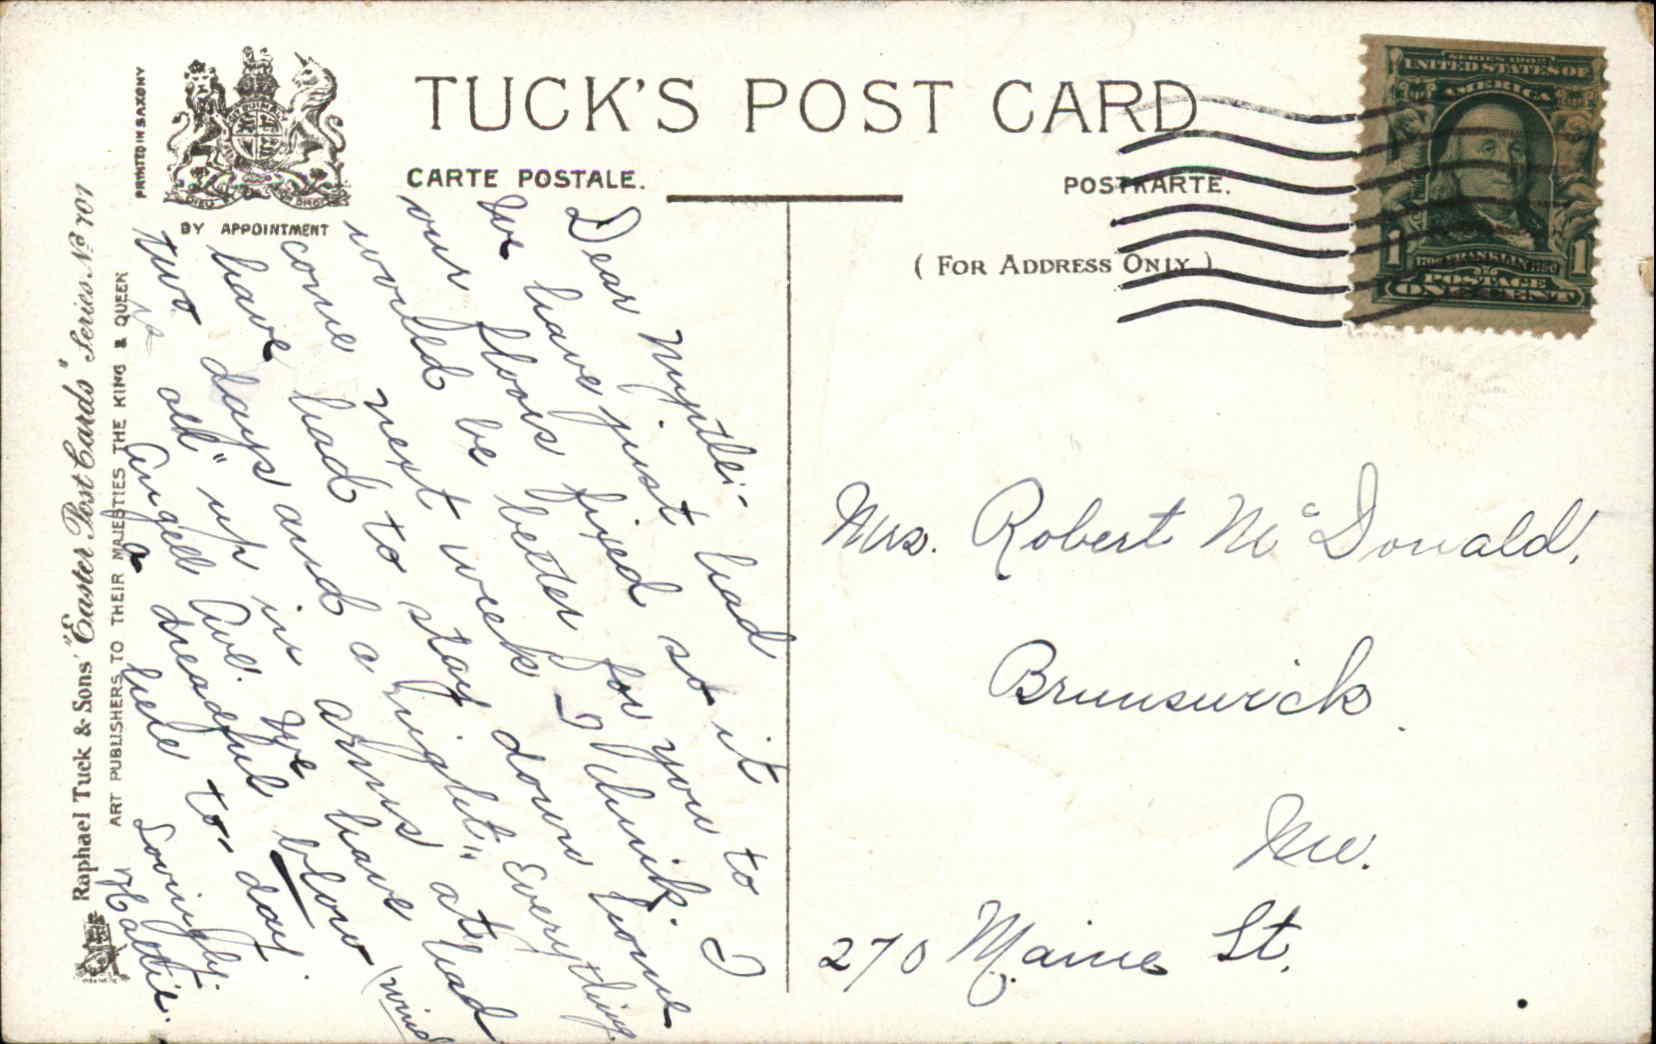 TUCK'S POST CARD
CARTE POSTALE.
POSTKARTE.
( FOR ADDRESS ONLY )
PRINTED IN SAXONY
DIEU ET MON DROIT
BY APPOINTMENT
Raphael Tuck & Sons' "Easter Post Cards" Series No 707
ART PUBLISHERS TO THEIR MAJESTIES THE KING & QUEEN
SERIES 1902
UNITED STATES OF
AMERICA
1 FRANKLIN 1
POSTAGE
ONE CENT
Dear Myrtle:-
We have just had
our floors fixed so it
would be better for you to
come next week – I think. I
have had to stay down home
two days and a night. Everything
is "all" up in arms at
Angell Ave. We have had
a dreadful blow (wind)
here to-day.
Lovingly,
Hattie.
Mrs. Robert McDonald,
Brunswick.
Me.
270 Maine St.